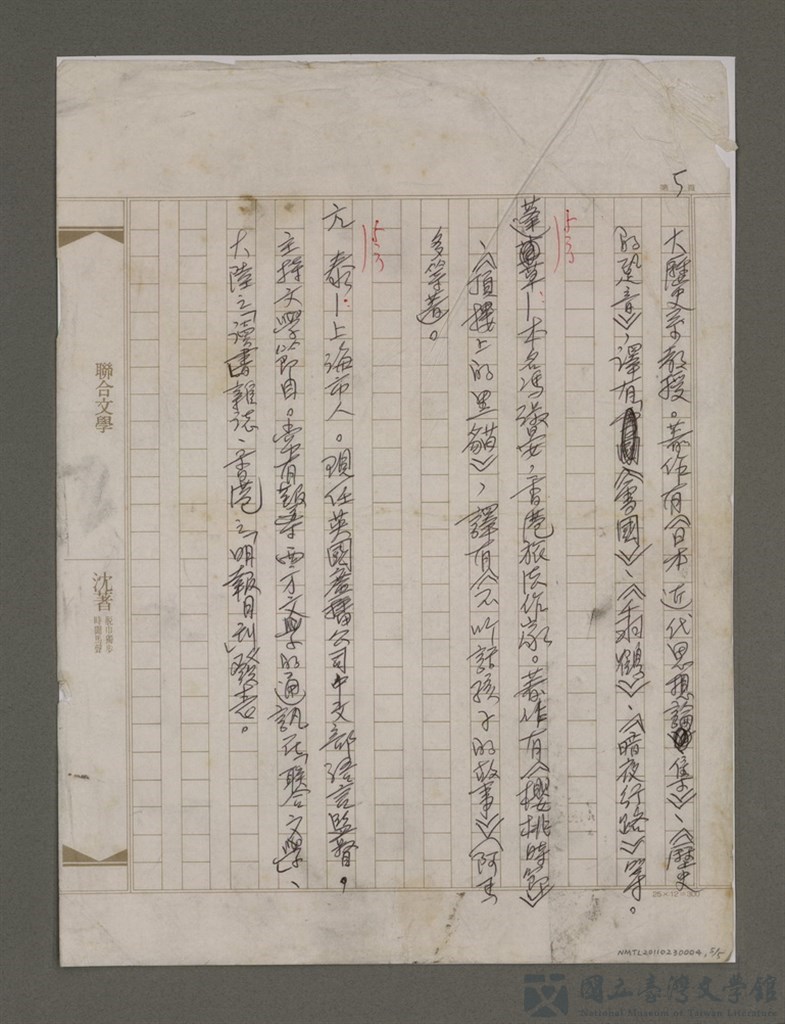 第5頁
大歷史系教授。著作有《日本近代思想論集》、《歷史
的跫音》，譯有《雪國》、《千羽鶴》、《暗夜行路》等。
蓬草－本名馮淑燕，香港旅法作家。著作有《櫻桃時節》
、《頂樓上的黑貓》，譯有《不聽話孩子的故事》《阿馬
多等著。
亢 泰－上海市人。現任英國廣播公司中文部語言監督，
主持文學節目。常有報導西方文學的通訊在「聯合文學」、
大陸之「讀書雜誌、香港之「明報月刊」發表。
聯合文學
沈著
25×12=300
NMTL20110230004, 5/5
國立臺灣文學館
National Museum of Taiwan Literature